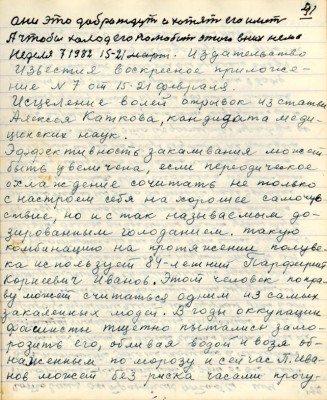 91
они это добра ждут и хотят его иметь
А чтобы холод его полюбит этого в них нема
Неделя 7 1982 15-21 март. Издательство
Известия Воскресное приложе-
ние N 7 от 15 21 февраля
Исцеление волей отрывок из статьи
Алексея Каткова, кандидата меди-
цинских наук.
Эффективность закаливания может
быть увеличена, если переодическое
охлаждение сочитать не только
с настроем себя на хорошее самочув-
ствие, но и с так называемым до-
зированным голоданием. такую
комбинацию на протяжение полуве-
ка использует 84-летний Парфирий
Корнеевич Иванов. Этот человек по пра-
ву может считаться одним из самых
закаленных людей. В годы оккупации
фашисты тщетно пытались замо-
розить его, обливая водой и возя об-
наженным по морозу и сейчас П. Ива-
нов может без риска часами прогу-